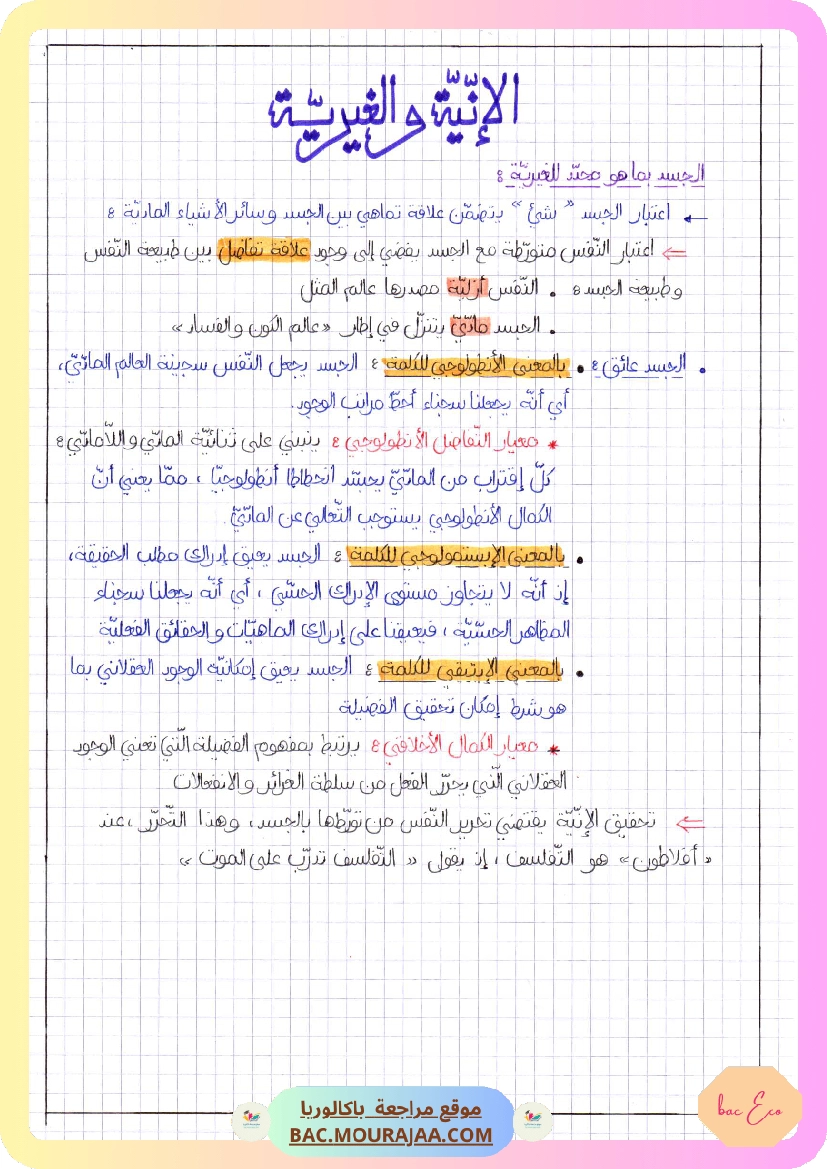 الإنّيّة والغيريّة
الجسد بما هو محدّد للغيريّة :
← اعتبار الجسد "شيئ" يتضمّن علاقة تماهي بين الجسد وسائر الأشياء الماديّة :
⇐ اعتبار النّفس متورّطة مع الجسد يفضي إلى وجود علاقة تفاضل بين طبيعة النّفس
وطبيعة الجسد : • النّفس أزليّة مصدرها عالم المثل
• الجسد ماديّ يتنزّل في إطار «عالم الكون والفساد»
• الجسد عائق : • بالمعنى الأنطولوجي للكلمة : الجسد يجعل النّفس سجينة العالم الماديّ،
أي أنّه يجعلنا سجناء أحطّ مراتب الوجود.
* معيار التّفاضل الأنطولوجي : ينبني على ثنائيّة الماديّ واللّاماديّ :
كلّ إقتراب من الماديّ يجسّد انحطاطا أنطولوجيّا ، ممّا يعني أنّ
الكمال الأنطولوجي يستوجب التّعالي عن الماديّ.
• بالمعنى الإبستمولوجي للكلمة : الجسد يعيق إدراك مطلب الحقيقة،
إذ أنّه لا يتجاوز مستوى الإدراك الحسّي ، أي أنّه يجعلنا سجناء
المظاهر الحسّيّة ، فيعيقنا على إدراك الماهيّات والحقائق الفعليّة
• بالمعنى الإيتيقي للكلمة : الجسد يعيق إمكانيّة الوجود العقلاني بما
هو شرط إمكان تحقيق الفضيلة
* معيار الكمال الأخلاقي : يرتبط بمفهوم الفضيلة الّتي تعني الوجود
العقلاني الّذي يحرّر الفعل من سلطة الغرائز والانفعالات
⇐ تحقيق الإنّيّة يقتضي تحرير النّفس من تورّطها بالجسد، وهذا التّحرّر ،عند
«أفلاطون» هو التّفلسف ، إذ يقول « التّفلسف تدرّب على الموت »
bac Eco
موقع مراجعة باكالوريا
BAC.MOURAJAA.COM